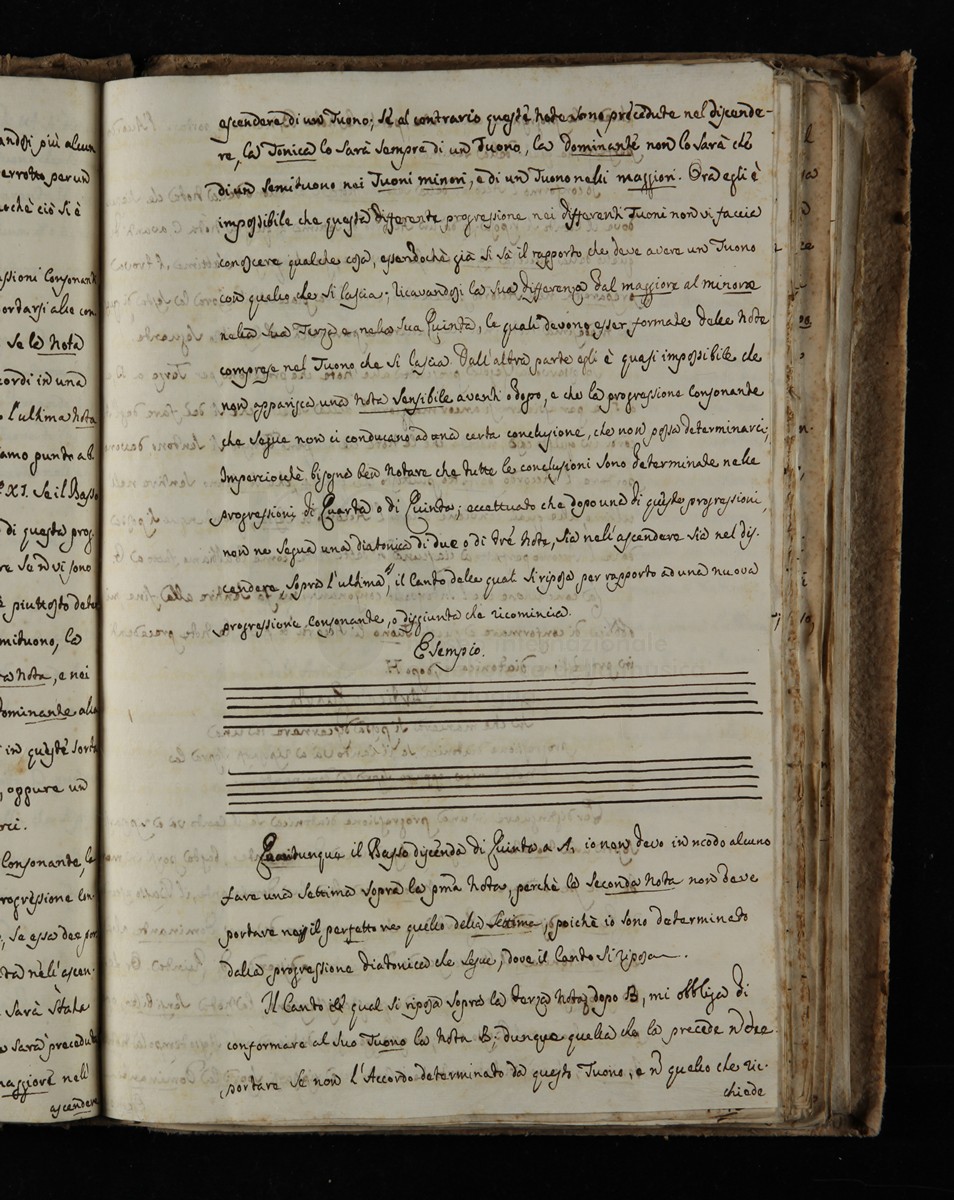 ascendere di un Tuono; se al contrario queste note sono precedute nel discende-
re, la Tonica lo sarà sempre di un Tuono, la Dominante non lo sarà che
di un semituono nei Tuoni minori, e di un Tuono nelli maggiori. Ora egli è
impossibile che questa differente progressione nei differenti Tuoni non vi faccia
conoscere qualche cosa, essendochè già si sà il rapporto che deve avere un Tuono
con quello che si lascia; ricavandosi la sua differenza dal maggiore al minore
nella sua Terza e nella sua Quinta, le quali devono esser formate delle Note
comprese nel Tuono che si lascia Dall'altra parte egli è quasi impossibile che
non apparisca una nota sensibile avanti o dopo, e che la progressione consonante
che segue non ci conducano ad una certa conclusione, che non possa determinarci;
Imperciochè bisogna ben notare che tutte le conclusioni sono determinate nelle
progressioni di Quarta o di Quinta; eccettuato che dopo una di queste progressioni,
non ne segua una diatonica di due o di trè Note, sia nell'ascendere sia nel dis-
cendere, sopra l'ultima, il Canto delle quali si riposa per rapporto ad una nuova
progressione consonante, o disgiunta che ricomincia.
Esempio.
il Basso discenda di Quinta a A, io non devo in modo alcuno
fare una settima sopra la pma Nota, perchè la seconda Nota non deve
portare il perfetto ne quello della Settima, poichè io sono determinato
dalla progressione diatonica che segue, dove il Canto si riposa.
Il Canto il qual si riposa sopra la terza Nota dopo B, mi obbliga di
conformare al suo Tuono la Nota B; dunque quella che la precede ñ dee
portare se non l'Accordo determinato da questo Tuono, e ñ quello che ric-
chiede
andosi più alcun
errotto per un
ochè ciò si è
ssioni Consonanti
ordarsi alle con
se la Nota
cordi in una
l'ultima Nota
amo punto al
XI. Se il Basso
di questa prog
re se ñ vi sono
piuttosto
mituono, la
a Nota, e nei
Dominante alla
in queste sorta
, oppure un
rci.
Consonante, la
rogressione con
, se essa dee por
ta nell'ascen-
sarà stata
sarà preceduta
maggiore nell'
ascendere